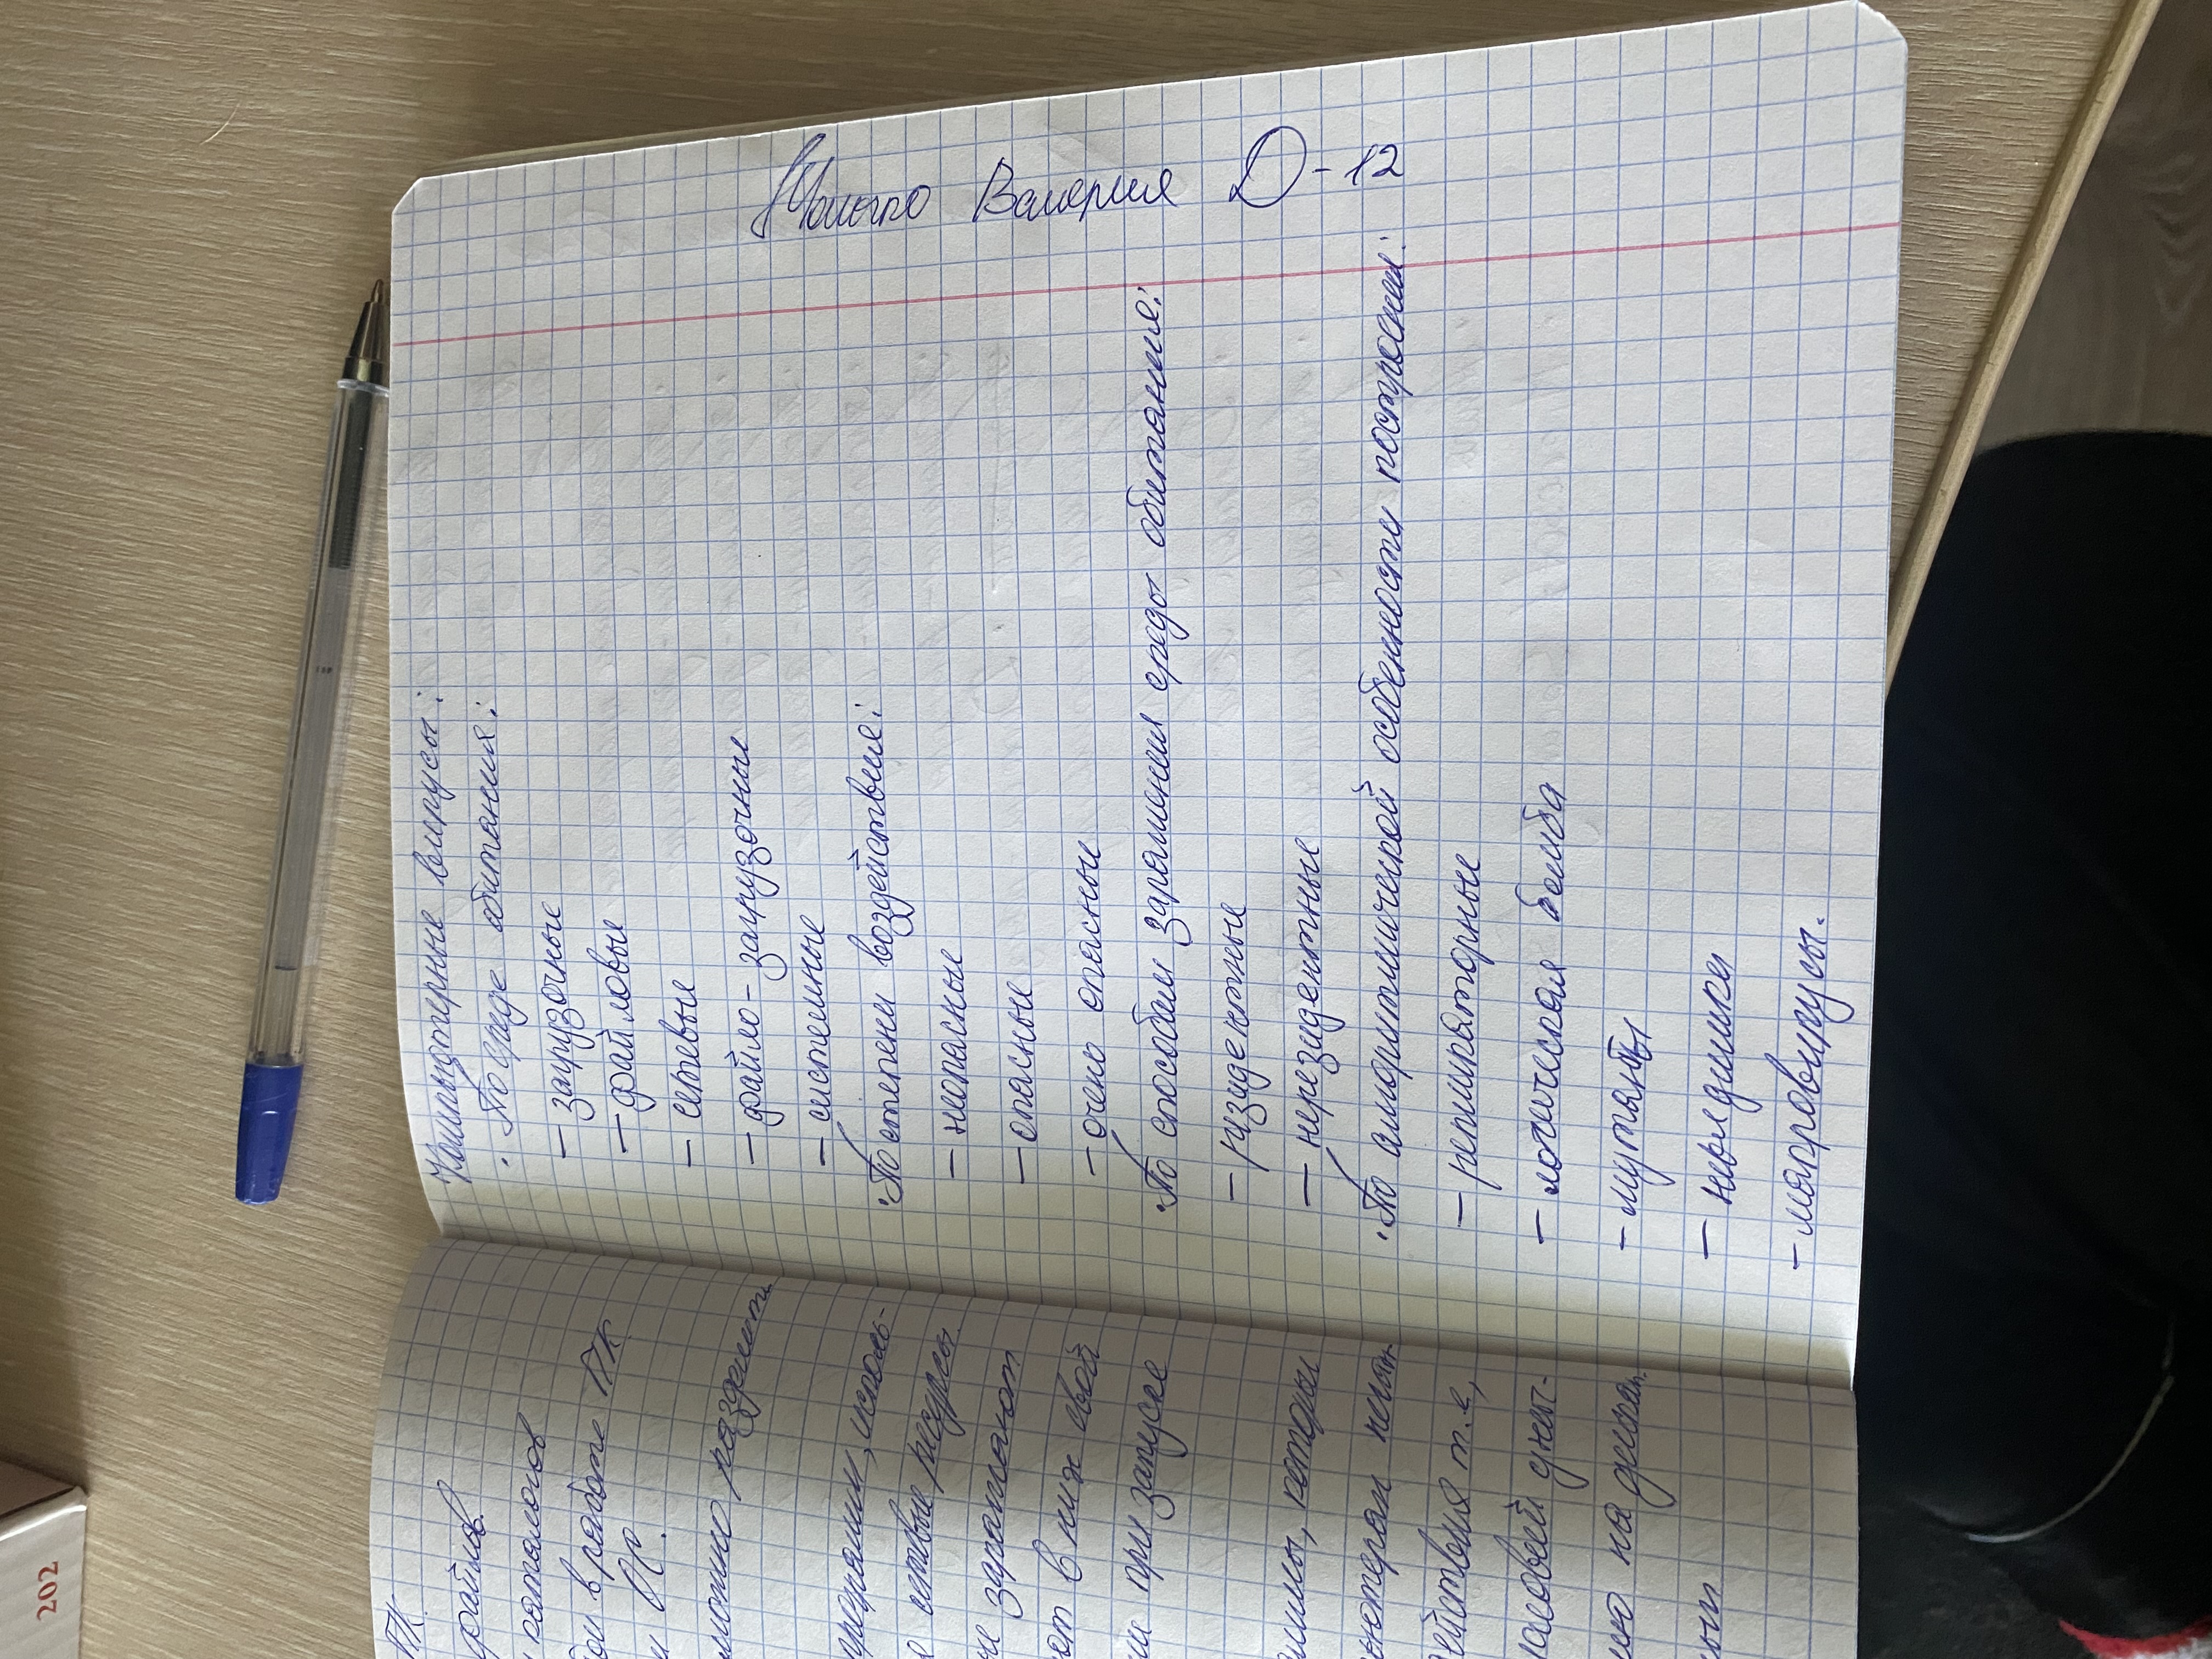 ПК.
файлов.
каталогов
в работе ПК
и ОС.
можно разделить
исполь-
е сетевые ресурсы
не заражают
ют в них свой
при запуске
которы
действия т.е,
совей уни-
на дисках.
Компьютерные вирусы:
· По среде обитания:
— загрузочные
— файловые
— сетевые
— файло-загрузочные
— системные
·По степени воздействия:
— неопасные
— опасные
— очень опасные
·По способам заражения среды обитания:
— резидентные
— нерезидентные
·По алгоритмической особенности построения:
— репликаторные
— логическая бомба
— мутанты
— невидимки
— макровирусы.
Валерия D-12
202